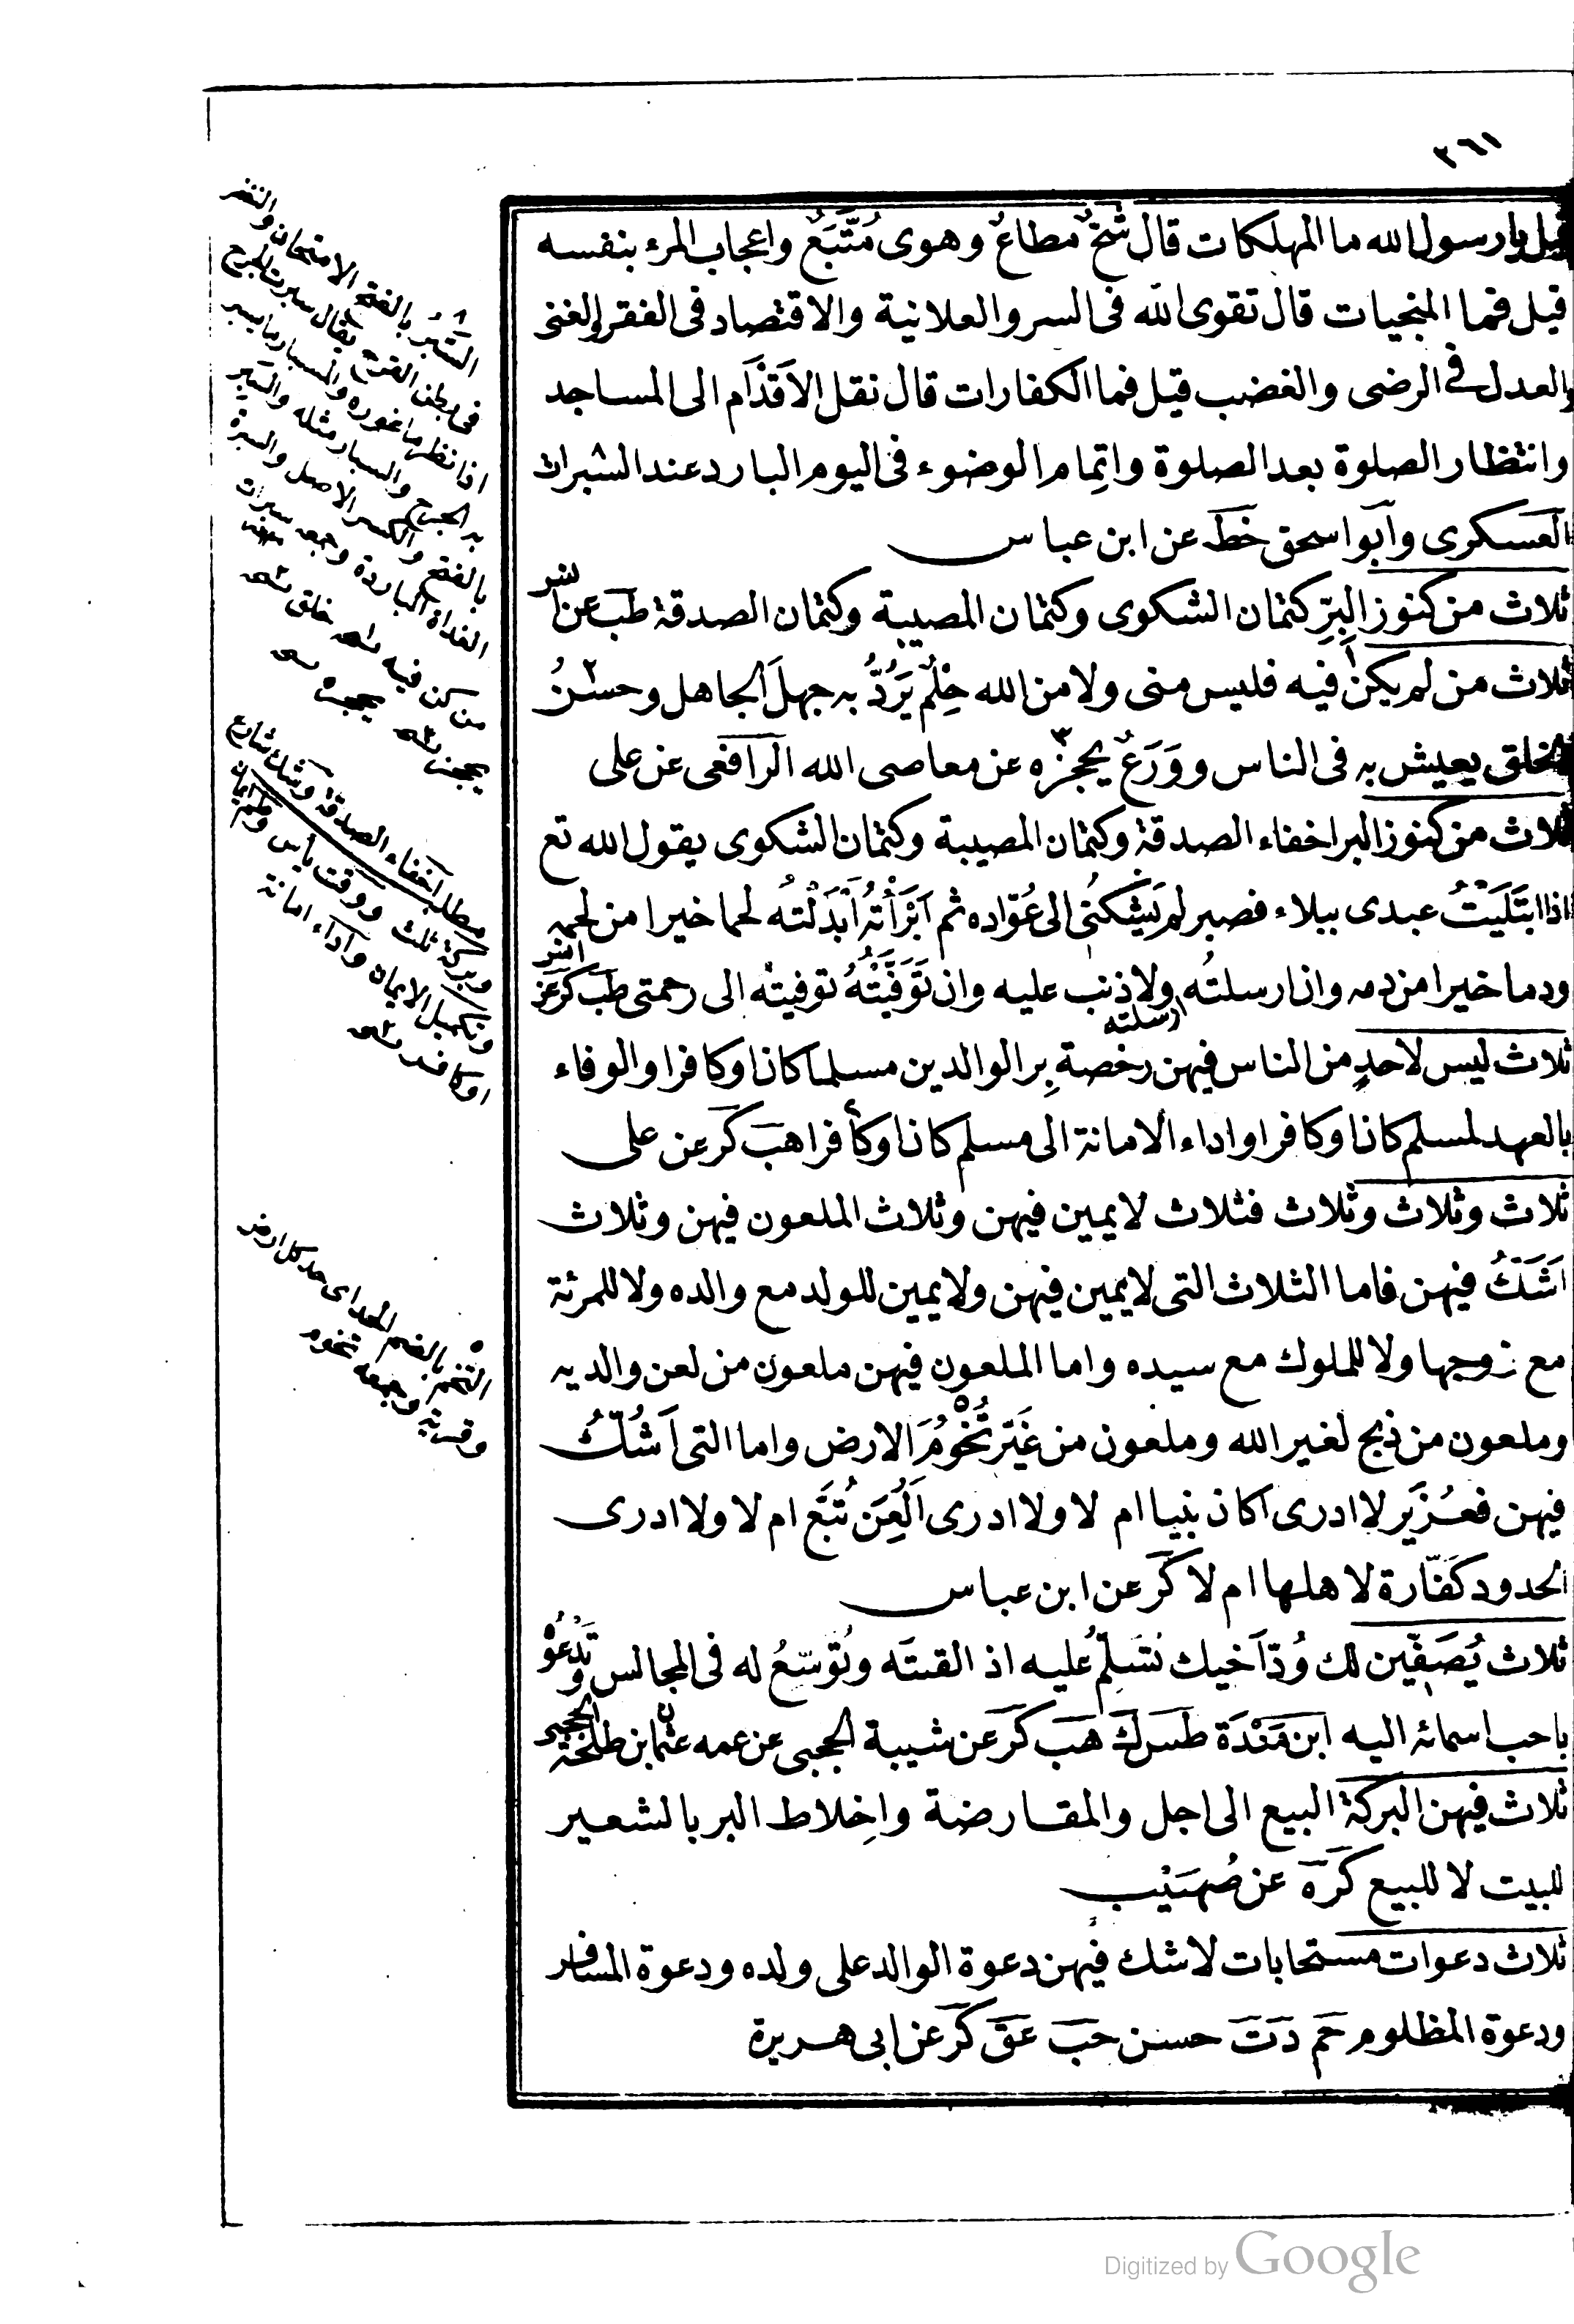 ٣٦١
قيل يا رسول الله ما المهلكات قال شُحٌّ مطاعٌ وهوى مُتَّبَعٌ واعجاب المرء بنفسه
قيل فما المنجيات قال تقوى الله فى السر والعلانية والاقتصاد فى الفقر والغنى
والعدل فى الرضى والغضب قيل فما الكفارات قال نقل الاَقدَام الى المساجد
وانتظار الصلوة بعد الصلوة واتِمام الوضوء فى اليوم البارد عند السَبرات
العسكرى وابو اسحق خط عن ابن عباس
ثلاث من كنوز البِرِّ كتمان الشكوى وكتمان المصيبة وكتمان الصدقة طب عن انس
ثلاث من لم يكن فيه فليس منى ولا من الله حِلْمٌ يَرُدُّ به جهلَ الجاهل وحسْنُ
الخلق يعيش به فى الناس ووَرَعٌ يحجزه عن معاصى الله الرافعى عن على
ثلاث من كنوز البر اخفاء الصدقة وكتمان المصيبة وكتمان الشكوى يقول الله تع
اذا ابتَلَيْتُ عبدى ببلاء فصبر لم يَشكُنى الى عُوّاده ثم اَبْرَأْتهُ اَبْدَلْتهُ لحما خيرا من لحمه
ودما خيرا من دمه وان ارسلتُه ولا ذنب عليه وان تَوَفَّيْتُهُ توفيتُه الى رحمتى طب كر عن انس
ارسلته
ثلاث ليس لاحدٍ من الناس فيهن رخصة بِر الوالدين مسلما كان او كافرا والوفاء
بالعهد لمسلم كان او كافرا واداء الامانة الى مسلم كان او كافرا هب كر عن على
ثلاث وثلاث وثلاث فثلاث لا يمين فيهن وثلاث الملعون فيهن وثلاث
اَشُكُّ فيهن فاما الثلاث التى لا يمين فيهن ولا يمين للولد مع والده ولا للمرئة
مع زوجها ولا للملوك مع سيده واما الملعون فيهن ملعون من لعن والديه
وملعون من ذبح لغير الله وملعون من غَيَّر تُخُومَ الارض واما التى اَشُكُّ
فيهن فعُزَير لا ادرى اكان نبيا ام لا ولا ادرى اَلُعِنَ تُبَّع ام لا ولا ادرى
الحدود كفّارة لاهلها ام لا كر عن ابن عباس
ثلاث يُصَفِّين لك وُدّ اَخيك تُسَلِّمُ عليه اذ القيتَه وتُوَسِّعُ له فى المجالس وتَدْعُوْ
باحب اسمائه اليه ابن مَنْدَة طس ك هب كر عن شيبة الحجبى عن عمه عثمان بن طلحة الحجبى
ثلاث فيهن البركة البيع الى اجل والمقارضة واخِلاط البر بالشعير
للبيت لا للبيع كر ه عن صُهَيْب
ثلاث دعوات مستجابات لا شك فيهن دعوة الوالد على ولده ودعوة المسافر
ودعوة المظلوم حم د ت حسن حب عق كر عن ابى هريرة
السَبْرُ بالفتح الامتحان والنظر
بالفتح والكسر الاصل والسبرة
الغداة الباردة وجمعه سبرات
من كن فيه نسخه خلق نسخه
مطلب اخفاء الصدقة
وتكميل الايمان واداء امانة
او كافر نسخه
التخم بالضم الحد اى حد كل ارض
وقرية وجمعه تخوم
Digitized by Google